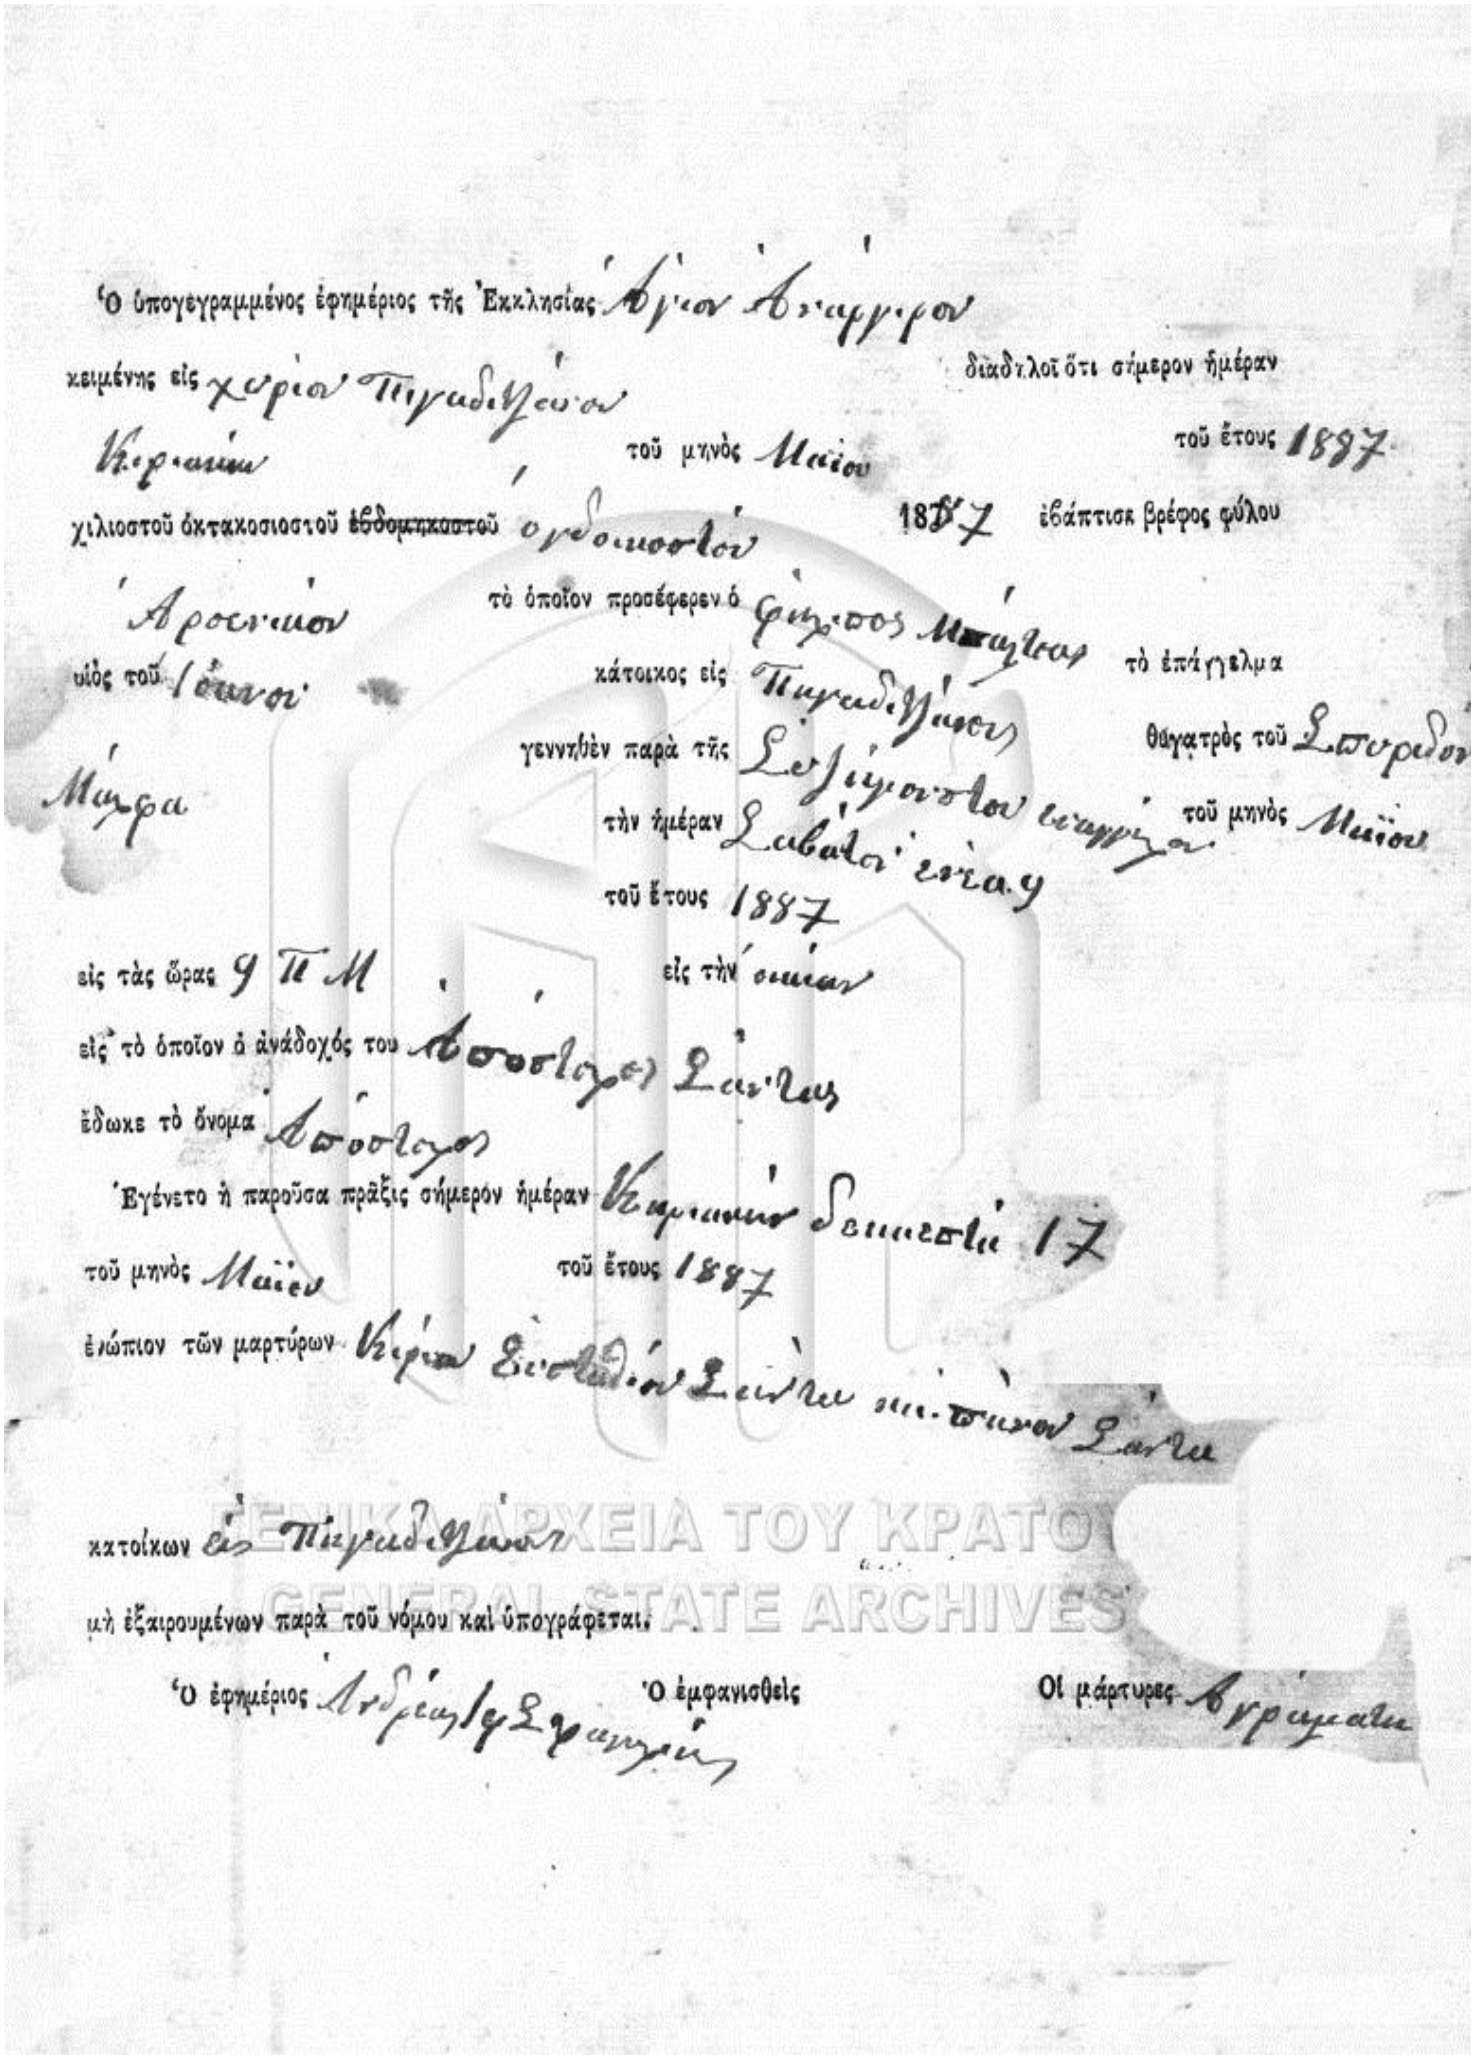 Ὁ ὑπογεγραμμένος ἐφημέριος τῆς Ἐκκλησίας Ἁγίον Ἀναργιρον
κειμένης εἰς χορίον Πιγαδιτζάνον διαδηλοῖ ὅτι σήμερον ἡμέραν
Κιριακὴν τοῦ μηνὸς Μαΐου τοῦ ἔτους 1887
χιλιοστοῦ ὀκτακοσιοστοῦ ἑβδομηκοστοῦ ὀγδοικοστόν 1887 ἐβάπτισε βρέφος φύλου
Ἀρσενικὸν τὸ ὁποῖον προσέφερεν ὁ φίλιπος Μπάλτσας τὸ ἐπάγγελμα
υἱὸς τοῦ Ἰόανου κάτοικος εἰς Πιγαδιτζάνους
γεννηθὲν παρὰ τῆς θυγατρὸς τοῦ Σπυρίδον
Μάλφα τὴν ἡμέραν Σαβάτου ἐνέα 9 τοῦ μηνὸς Μαΐου
τοῦ ἔτους 1887
εἰς τὰς ὥρας 9 Π Μ εἰς τὴν οικίαν
εἰς τὸ ὁποῖον ὁ ἀνάδοχός του Ἀπόστολος Σάντας
ἔδωκε τὸ ὄνομα Ἀπόστολος
Ἐγένετο ἡ παροῦσα πρᾶξις σήμερον ἡμέραν Κιριακὴν δεκαεπτά 17
τοῦ μηνὸς Μαΐου τοῦ ἔτους 1887
ἐνώπιον τῶν μαρτύρων Κιρίον Εὐσταθίον Σάντα και πάνον Σάντα
κατοίκων εἰς Πιγαδιτζάνους
μὴ ἐξαιρουμένων παρὰ τοῦ νόμου καὶ ὑπογράφεται.
Ὁ ἐφημέριος Ἀνδρέας Ὁ ἐμφανισθεὶς Οἱ μάρτυρες Ἀγράματι
ΓΕΝΙΚΑ ΑΡΧΕΙΑ ΤΟΥ ΚΡΑΤΟΥ
GENERAL STATE ARCHIVES